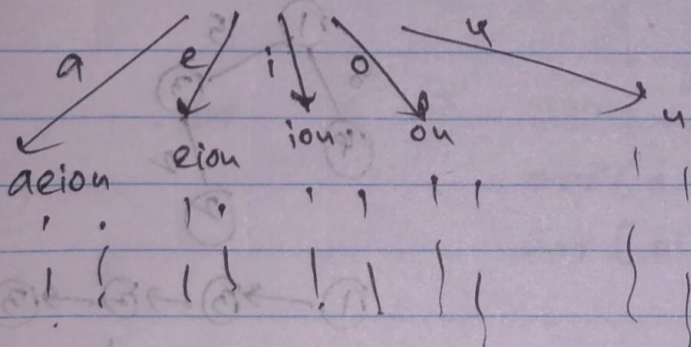 a e i o u
aeiou eiou iou ou u